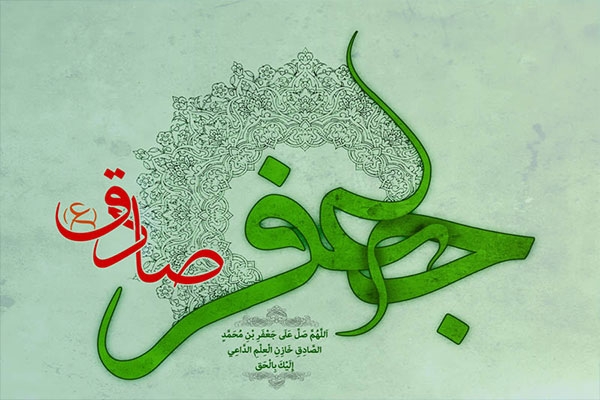 جعفر
صادق
(ع)
اَللّٰهُمَّ صَلِّ عَلَى جَعْفَرِ بْنِ مُحَمَّدٍ
الصَّادِقِ خَازِنِ الْعِلْمِ الدَّاعِي
إِلَيْكَ بِالْحَقِّ